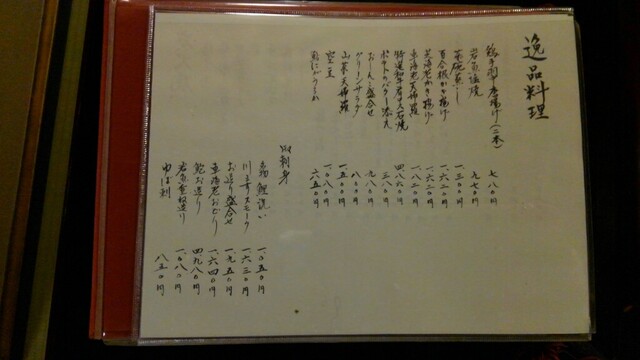 逸品料理
鶏手羽唐揚げ(二本) 七八〇円
岩魚塩焼 九七〇円
茶碗蒸し 一、三〇〇円
百合根かき揚げ 一、六二〇円
芝海老かき揚げ 一、六二〇円
車海老天婦羅 一、八二〇円
特選和牛石焼 四、八六〇円
ポテトのバター添え 三八〇円
おしんこ盛合せ 九八〇円
グリーンサラダ 八〇〇円
山菜天婦羅 一、五〇〇円
一、〇八〇円
六五〇円
お刺身
鯉洗い 一、〇五〇円
川ますスモーク 一、六三〇円
お造り盛合せ 一、九五〇円
車海老おどり 一、六四〇円
鮑お造り 四、九八〇円
岩魚姿造り 一、〇八〇円
ゆば刺 八五〇円